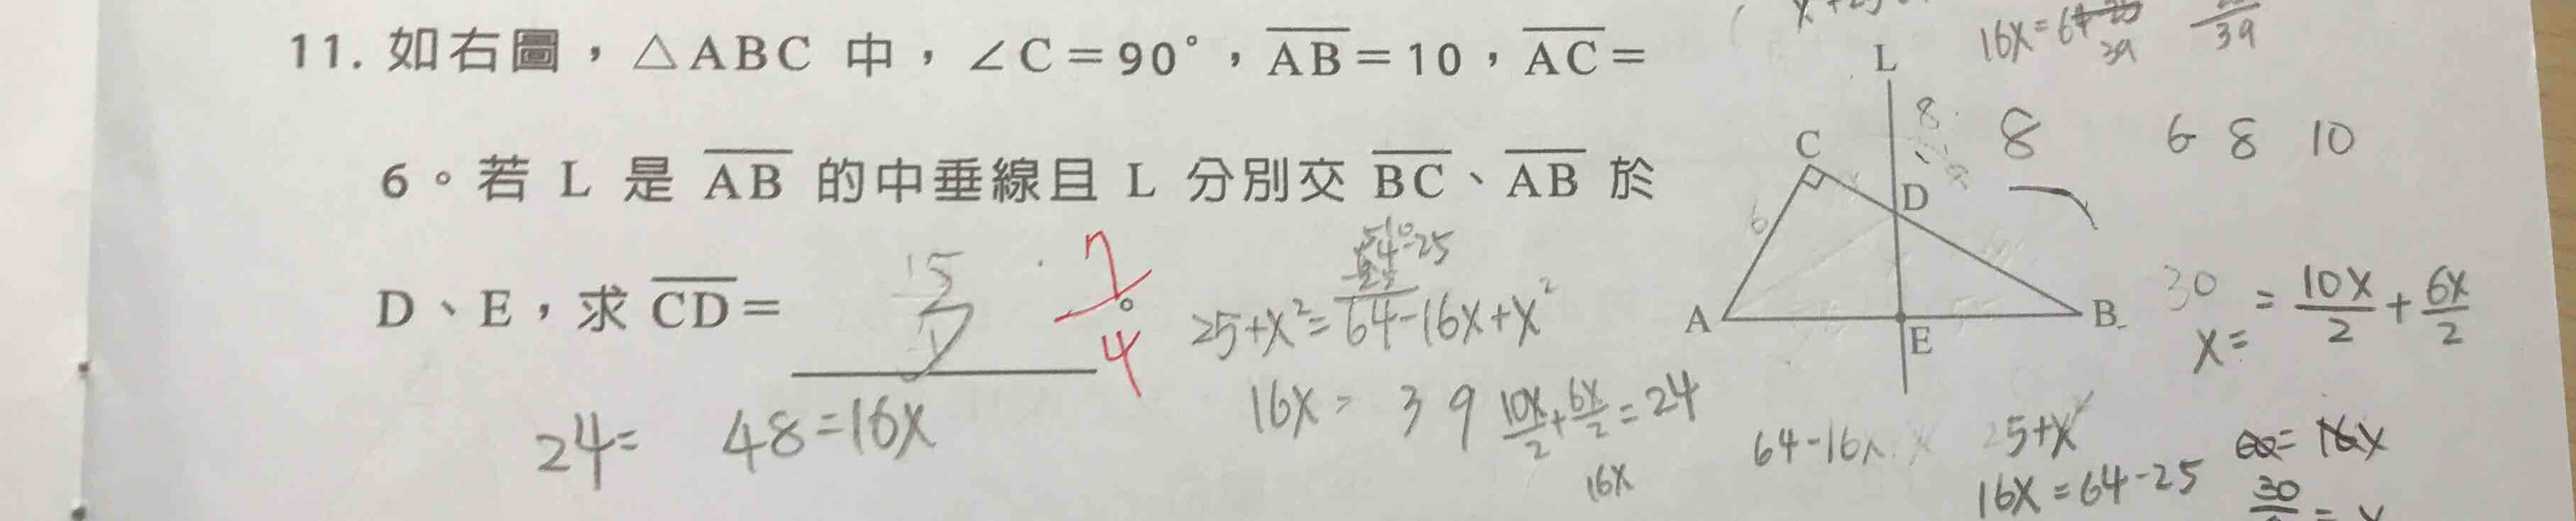 11. 如右圖，△ABC 中，∠C＝90°，AB＝10，AC＝
6。若 L 是 AB 的中垂線且 L 分別交 BC、AB 於
D、E，求 CD＝
7
4
25+x²=64-16x+x²
16x = 39
10x/2+6x/2=24
16x
24= 48=16x
L
C
D
A
B
E
6
8
8
6 8 10
30 = 10x/2 + 6x/2
x=
64-16x
25+x²
16x=64-25
16x=64
39
39
30